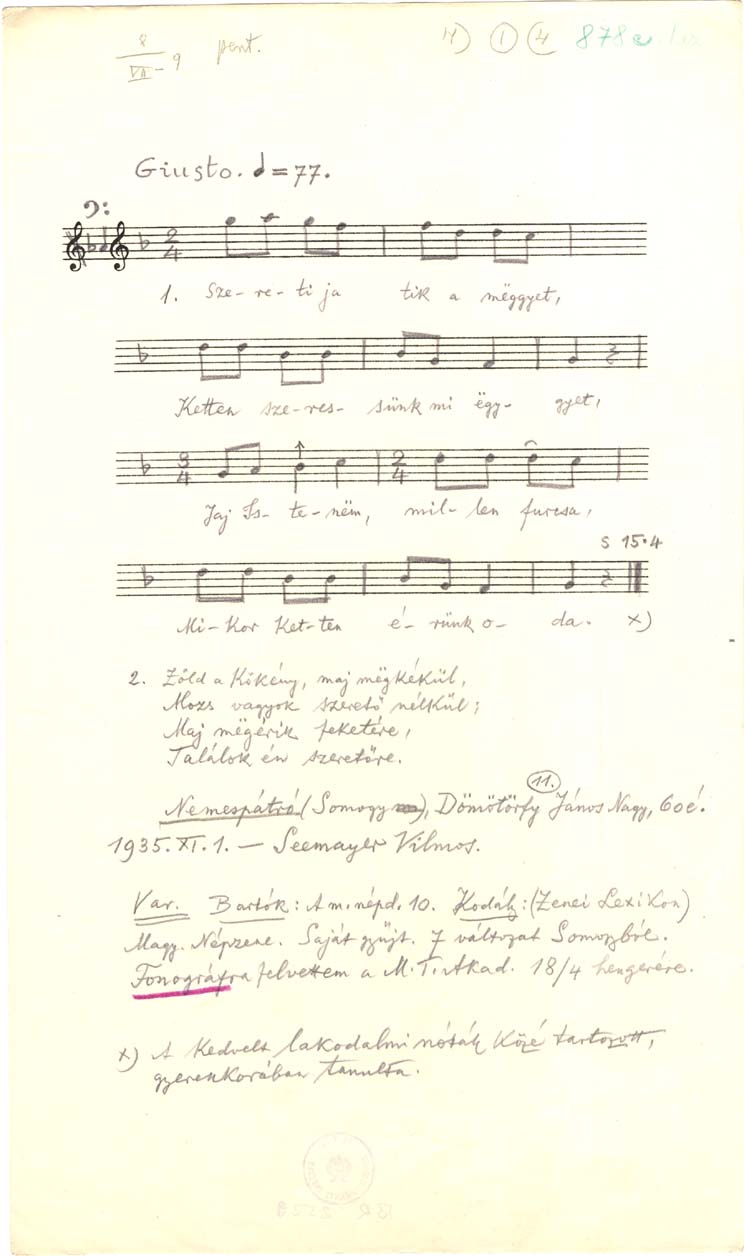 8
VII - 9 pent. 4) 1 4 878
Giusto. = 77.
2
4
1. Sze- re- ti ja tik a mëggyet,
Ketten sze- res- sünk mi ëgy- gyet,
3
4
2
4
Jaj Is- te- nëm, mil- len furcsa,
S 15.4
Mi- kor ket- ten é- rünk o- da. x)
2. Zöld a kökény, maj mëgkékül,
Mozs vagyok szerető nélkül;
Maj mëgérik feketére,
Találok én szeretőre.
11.
Nemespátró (Somogy), Dömötörfy János Nagy, 60 é.
1935. XI. 1. — Seemayer Vilmos.
Var. Bartók: A m. népd. 10. Kodály: (Zenei Lexikon)
Magy. Népzene. Saját gyüjt. 7 változat Somogyból.
Fonográfra felvettem a M. T. Akad. 18/4 hengerére.
x) A kedvelt lakodalmi nóták közé tartozott,
gyerekkorában tanulta.